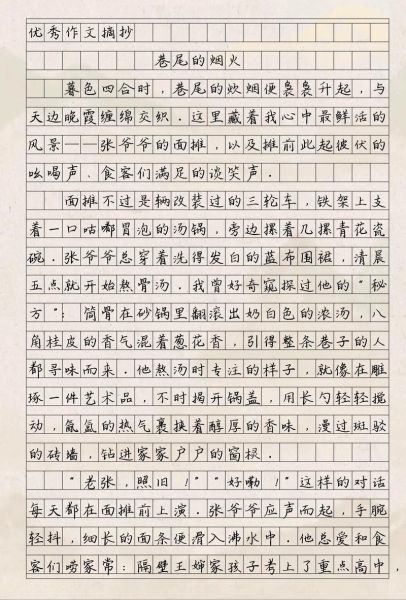 优秀作文摘抄
巷尾的烟火
暮色四合时，巷尾的炊烟便袅袅升起，与
天边晚霞缠绵交织．这里藏着我心中最鲜活的
风景——张爷爷的面摊，以及摊前此起彼伏的
吆喝声、食客们满足的谈笑声．
面摊不过是辆改装过的三轮车，铁架上支
着一口咕嘟冒泡的汤锅，旁边摞着几摞青花瓷
碗．张爷爷总穿着洗得发白的蓝布围裙，清晨
五点就开始熬骨汤．我曾好奇窥探过他的“秘
方”：筒骨在砂锅里翻滚出奶白色的浓汤，八
角桂皮的香气混着葱花香，引得整条巷子的人
都寻味而来．他熬汤时专注的样子，就像在雕
琢一件艺术品，不时揭开锅盖，用长勺轻轻搅
动，氤氲的热气裹挟着醇厚的香味，漫过斑驳
的砖墙，钻进家家户户的窗棂．
“老张，照旧！”“好嘞！”这样的对话
每天都在面摊前上演．张爷爷应声而起，手腕
轻抖，细长的面条便滑入沸水中．他总爱和食
客们唠家常：隔壁王婶家孩子考上了重点高中，